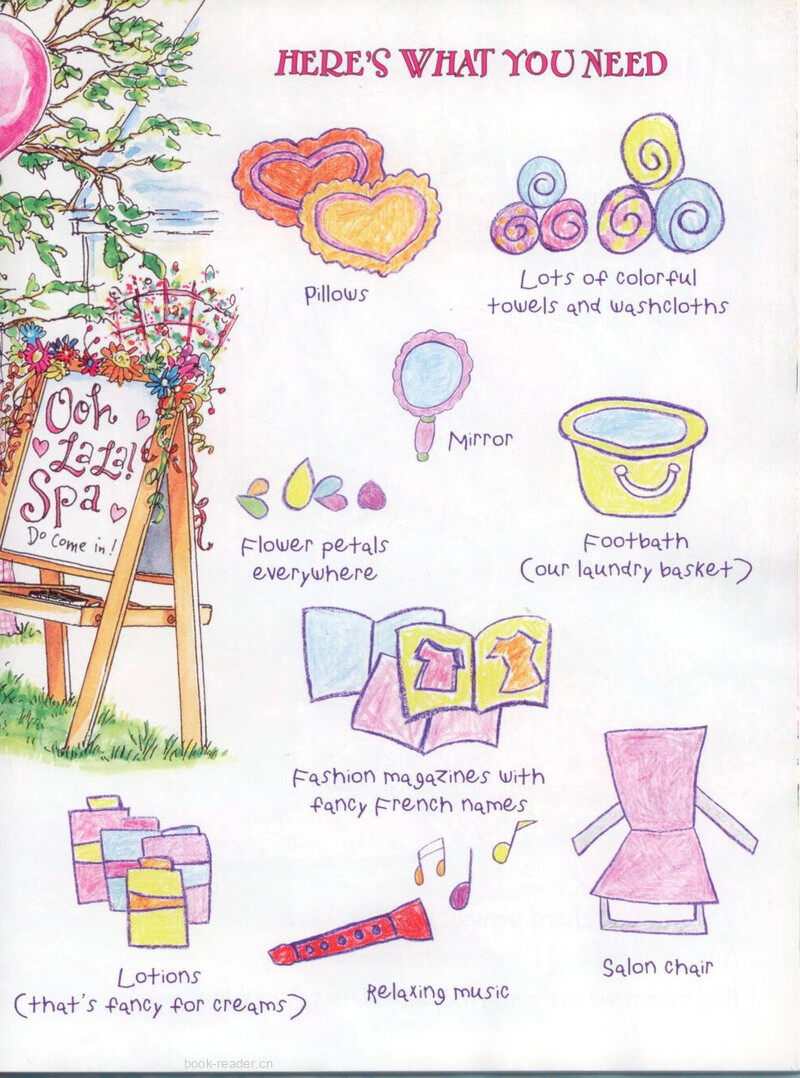 HERE'S WHAT YOU NEED
Pillows
Lots of colorful
towels and washcloths
Ooh
LaLa!
Spa
Do come in!
Mirror
Flower petals
everywhere
Footbath
(our laundry basket)
Fashion magazines with
fancy French names
Lotions
(that's fancy for creams)
Relaxing music
Salon chair
book-reader.cn